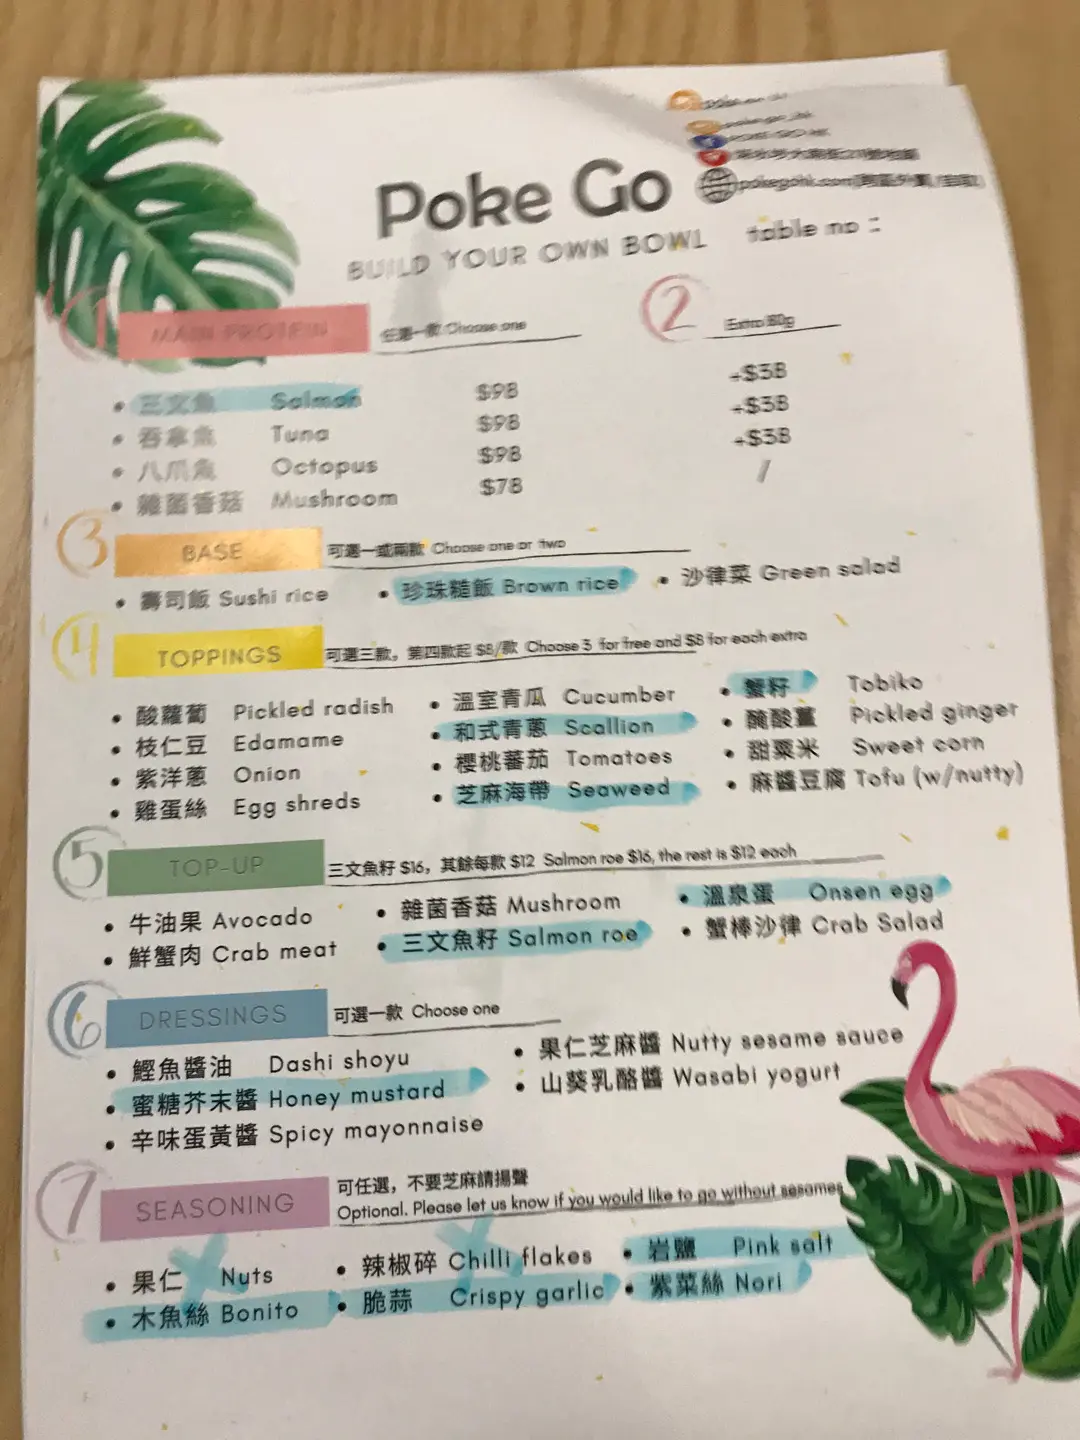 Poke Go
BUILD YOUR OWN BOWL
table no :
pokegohk.com
1 MAIN PROTEIN 任選一款 Choose one
2 Extra 80g
• 三文魚 Salmon $98 +$38
• 吞拿魚 Tuna $98 +$38
• 八爪魚 Octopus $98 +$38
• 雜菌香菇 Mushroom $78 /
3 BASE 可選一或兩款 Choose one or two
• 壽司飯 Sushi rice • 珍珠糙飯 Brown rice • 沙律菜 Green salad
4 TOPPINGS 可選三款，第四款起 $8/款 Choose 3 for free and $8 for each extra
• 酸蘿蔔 Pickled radish • 溫室青瓜 Cucumber • 蟹籽 Tobiko
• 枝仁豆 Edamame • 和式青蔥 Scallion • 醃酸薑 Pickled ginger
• 紫洋蔥 Onion • 櫻桃蕃茄 Tomatoes • 甜粟米 Sweet corn
• 雞蛋絲 Egg shreds • 芝麻海帶 Seaweed • 麻醬豆腐 Tofu (w/nutty)
5 TOP-UP 三文魚籽 $16，其餘每款 $12 Salmon roe $16, the rest is $12 each
• 牛油果 Avocado • 雜菌香菇 Mushroom • 溫泉蛋 Onsen egg
• 鮮蟹肉 Crab meat • 三文魚籽 Salmon roe • 蟹棒沙律 Crab Salad
6 DRESSINGS 可選一款 Choose one
• 鰹魚醬油 Dashi shoyu • 果仁芝麻醬 Nutty sesame sauce
• 蜜糖芥末醬 Honey mustard • 山葵乳酪醬 Wasabi yogurt
• 辛味蛋黃醬 Spicy mayonnaise
7 SEASONING 可任選，不要芝麻請揚聲
Optional. Please let us know if you would like to go without sesames
• 果仁 Nuts • 辣椒碎 Chilli flakes • 岩鹽 Pink salt
• 木魚絲 Bonito • 脆蒜 Crispy garlic • 紫菜絲 Nori